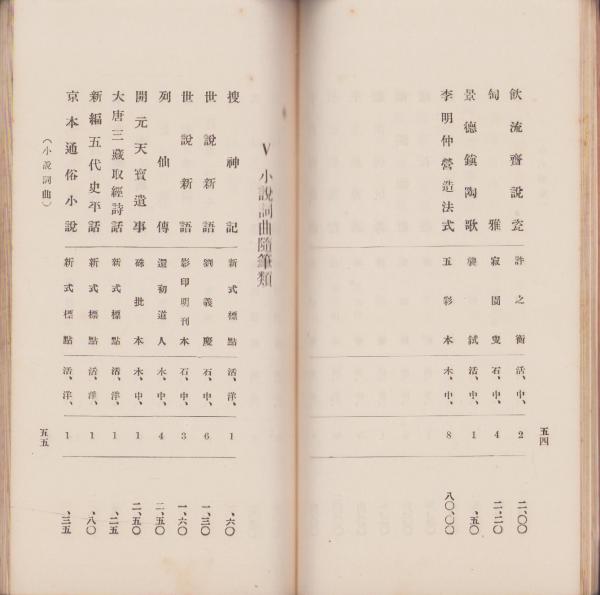 飮流齋說瓷 許之衡 活、中、 2 二、〇〇
匋雅 寂園叟 石、中、 4 二、二〇
景德鎭陶歌 龔鉽 活、中、 1 、五〇
李明仲營造法式 五彩本 木、中、 8 八〇、〇〇
五四
V 小說詞曲隨筆類
搜神記 新式標點 活、洋、 1 、六〇
世說新語 劉義慶 石、中、 6 一、三〇
世說新語 影印明刊本 石、中、 3 一、六〇
列仙傳 還初道人 木、中、 4 二、五〇
開元天寶遺事 硃批本 木、中、 1 二、五〇
大唐三藏取經詩話 新式標點 活、洋、 1 、二五
新編五代史平話 新式標點 活、洋、 1 、八〇
京本通俗小說 新式標點 活、洋、 1 、三五
(小說詞曲)
五五